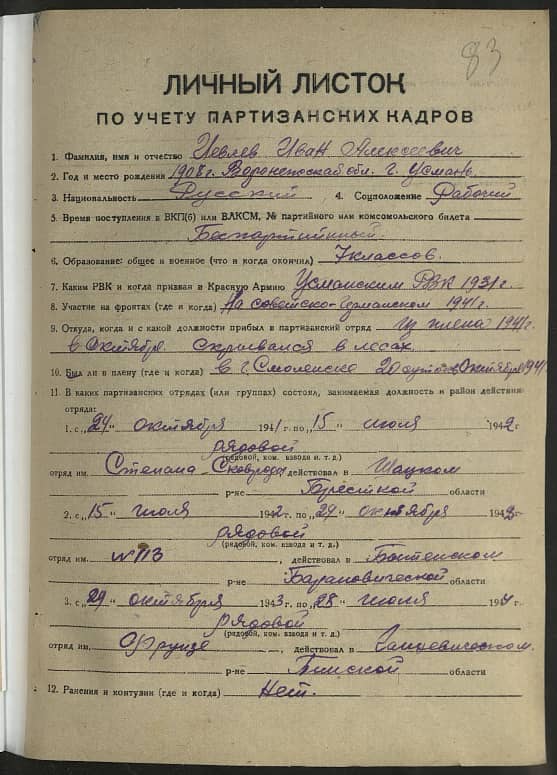 83
ЛИЧНЫЙ ЛИСТОК
ПО УЧЕТУ ПАРТИЗАНСКИХ КАДРОВ
1. Фамилия, имя и отчество Иевлев Иван Алексеевич
2. Год и место рождения 1908 г. Воронежской обл. г. Усмань
3. Национальность Русский 4. Соцположение Рабочий
5. Время поступления в ВКП(б) или ВЛКСМ, № партийного или комсомольского билета
Беспартийный.
6. Образование: общее и военное (что и когда окончил) 7 классов.
7. Каким РВК и когда призван в Красную Армию Усманским РВК 1931 г.
8. Участие на фронтах (где и когда) На советско-германском 1941 г.
9. Откуда, когда и с какой должности прибыл в партизанский отряд из плена 1941 г.
в Октябре скрывался в лесах.
10. Был ли в плену (где и когда) в г. Смоленске 20 суток Октябрь 1941
11. В каких партизанских отрядах (или группах) состоял, занимаемая должность и район действия
отряда:
1. с „24“ октября 1941 г. по „15“ июля 1942 г
рядовой
(рядовой, ком. взвода и т. д.)
отряд им. Степана Сковроды действовал в Шацком
р-не Брестской области
2. с „15“ июля 1942 г. по „29“ октября 1943 г.
рядовой
(рядовой, ком. взвода и т. д.)
отряд им. № 113, действовал в Бытенском
р-не Барановической области
3. с „29“ октября 1943 г. по „28“ июля 194 г.
рядовой
(рядовой, ком. взвода и т. д.)
отряд им. Фрунзе, действовал в Ганцевическом.
р-не Пинской области
12. Ранения и контузии (где и когда) Нет.